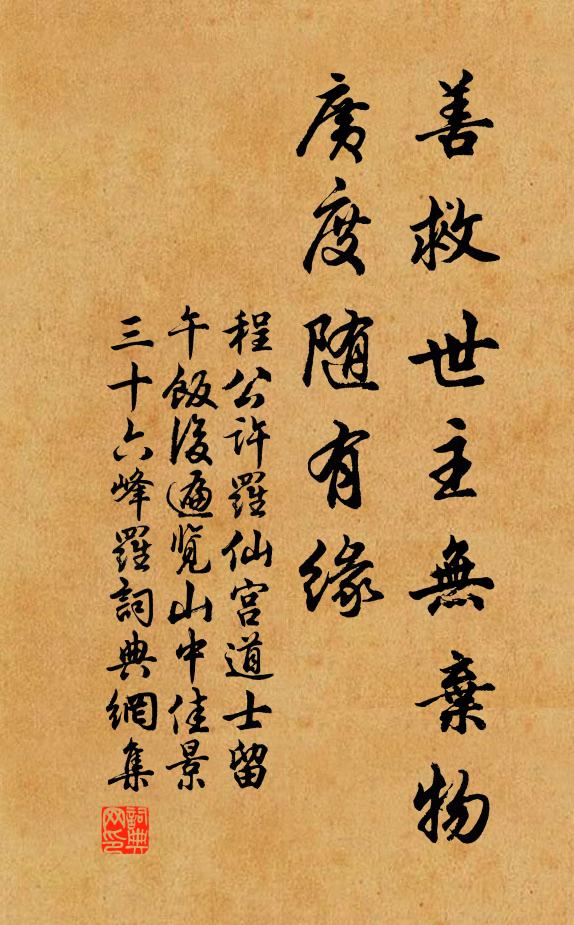 善救世主無棄物
廣度随有緣
程公許羅仙宫道士留
午飯後遍覽山中佳景
三十六峰羅詞典網集
詞典网印